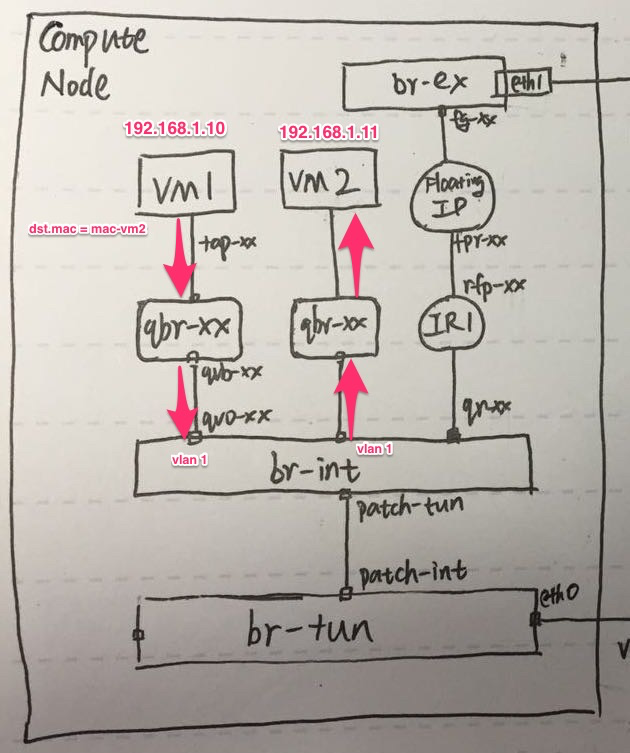 Compute
Node
br-ex
eth1
fg-xx
192.168.1.10
192.168.1.11
VM1
VM2
Floating
IP
dst.mac = mac-vm2
tap-xx
fpr-xx
rfp-xx
qbr-xx
qbr-xx
IR1
qvb-xx
qvo-xx
qr-xx
vlan 1
vlan 1
br-int
patch-tun
patch-int
eth0
br-tun
V